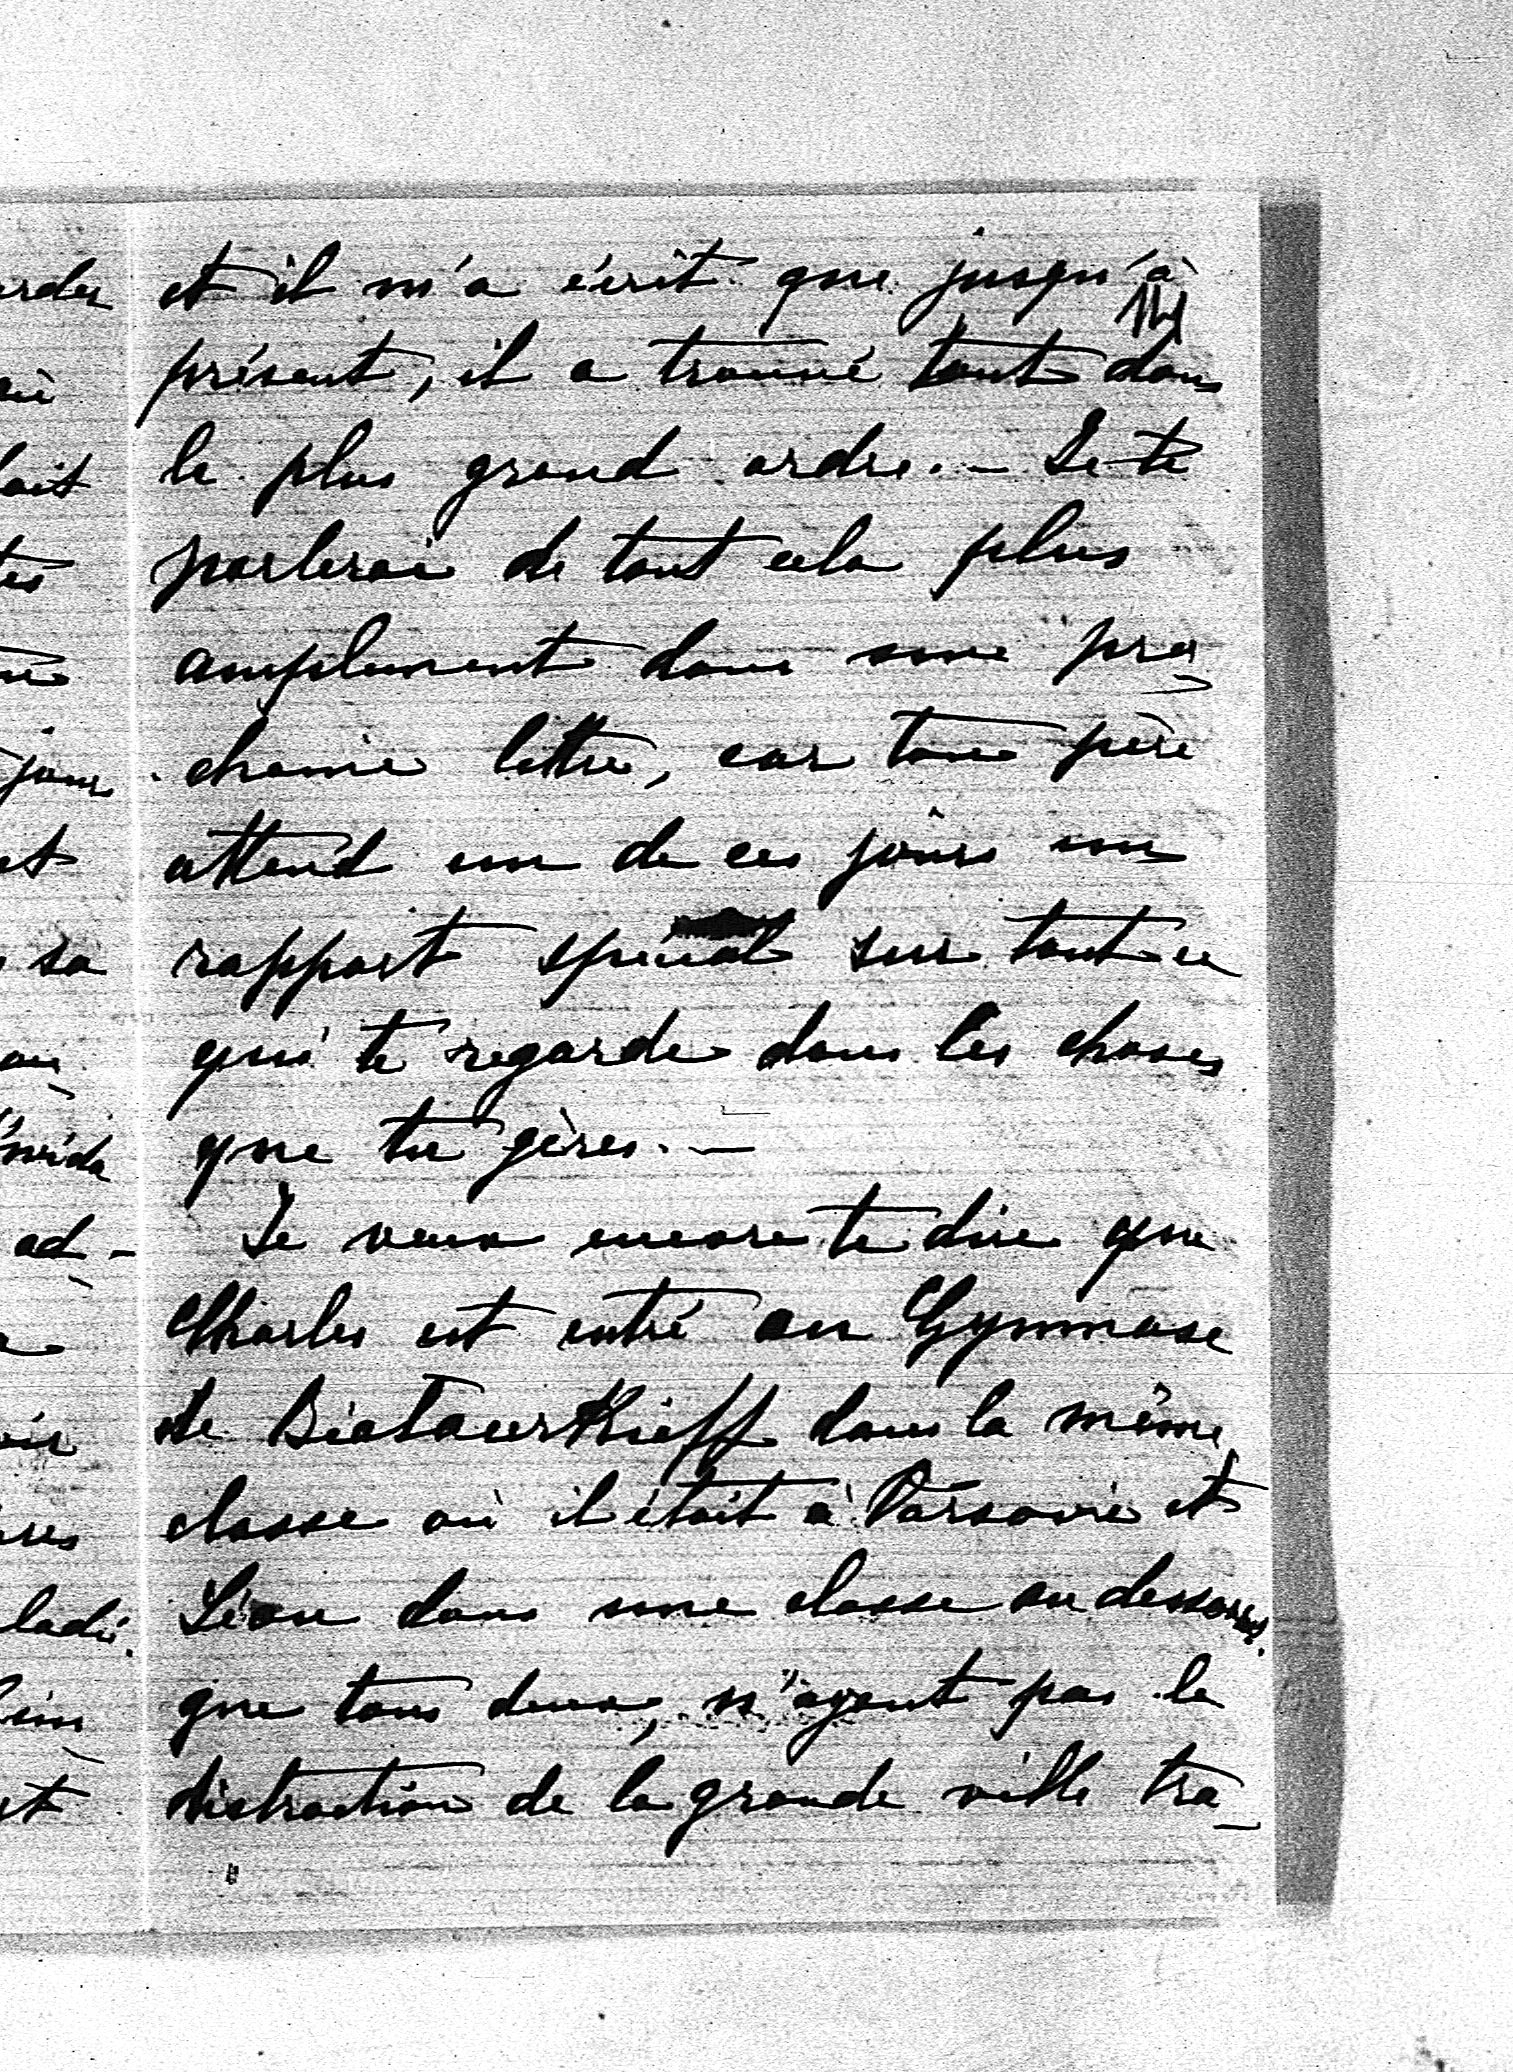 et il m'a écrit que jusqu'à
14
présent, il a trouvé tout dans
le plus grand ordre. — Je te
parlerai de tout cela plus
amplement dans une pro
chaine lettre, car ton père
attend un de ces jours un
rapport spécial sur tout ce
qui te regarde dans les choses
que tu gères. —
Je veux encore te dire que
Charles est entré au Gymnase
de Biataerkieff dans la même
classe où il était à Varsovie et
Léon dans une classe au dessous.
que tous deux, n'ayant pas la
distraction de la grande ville tra